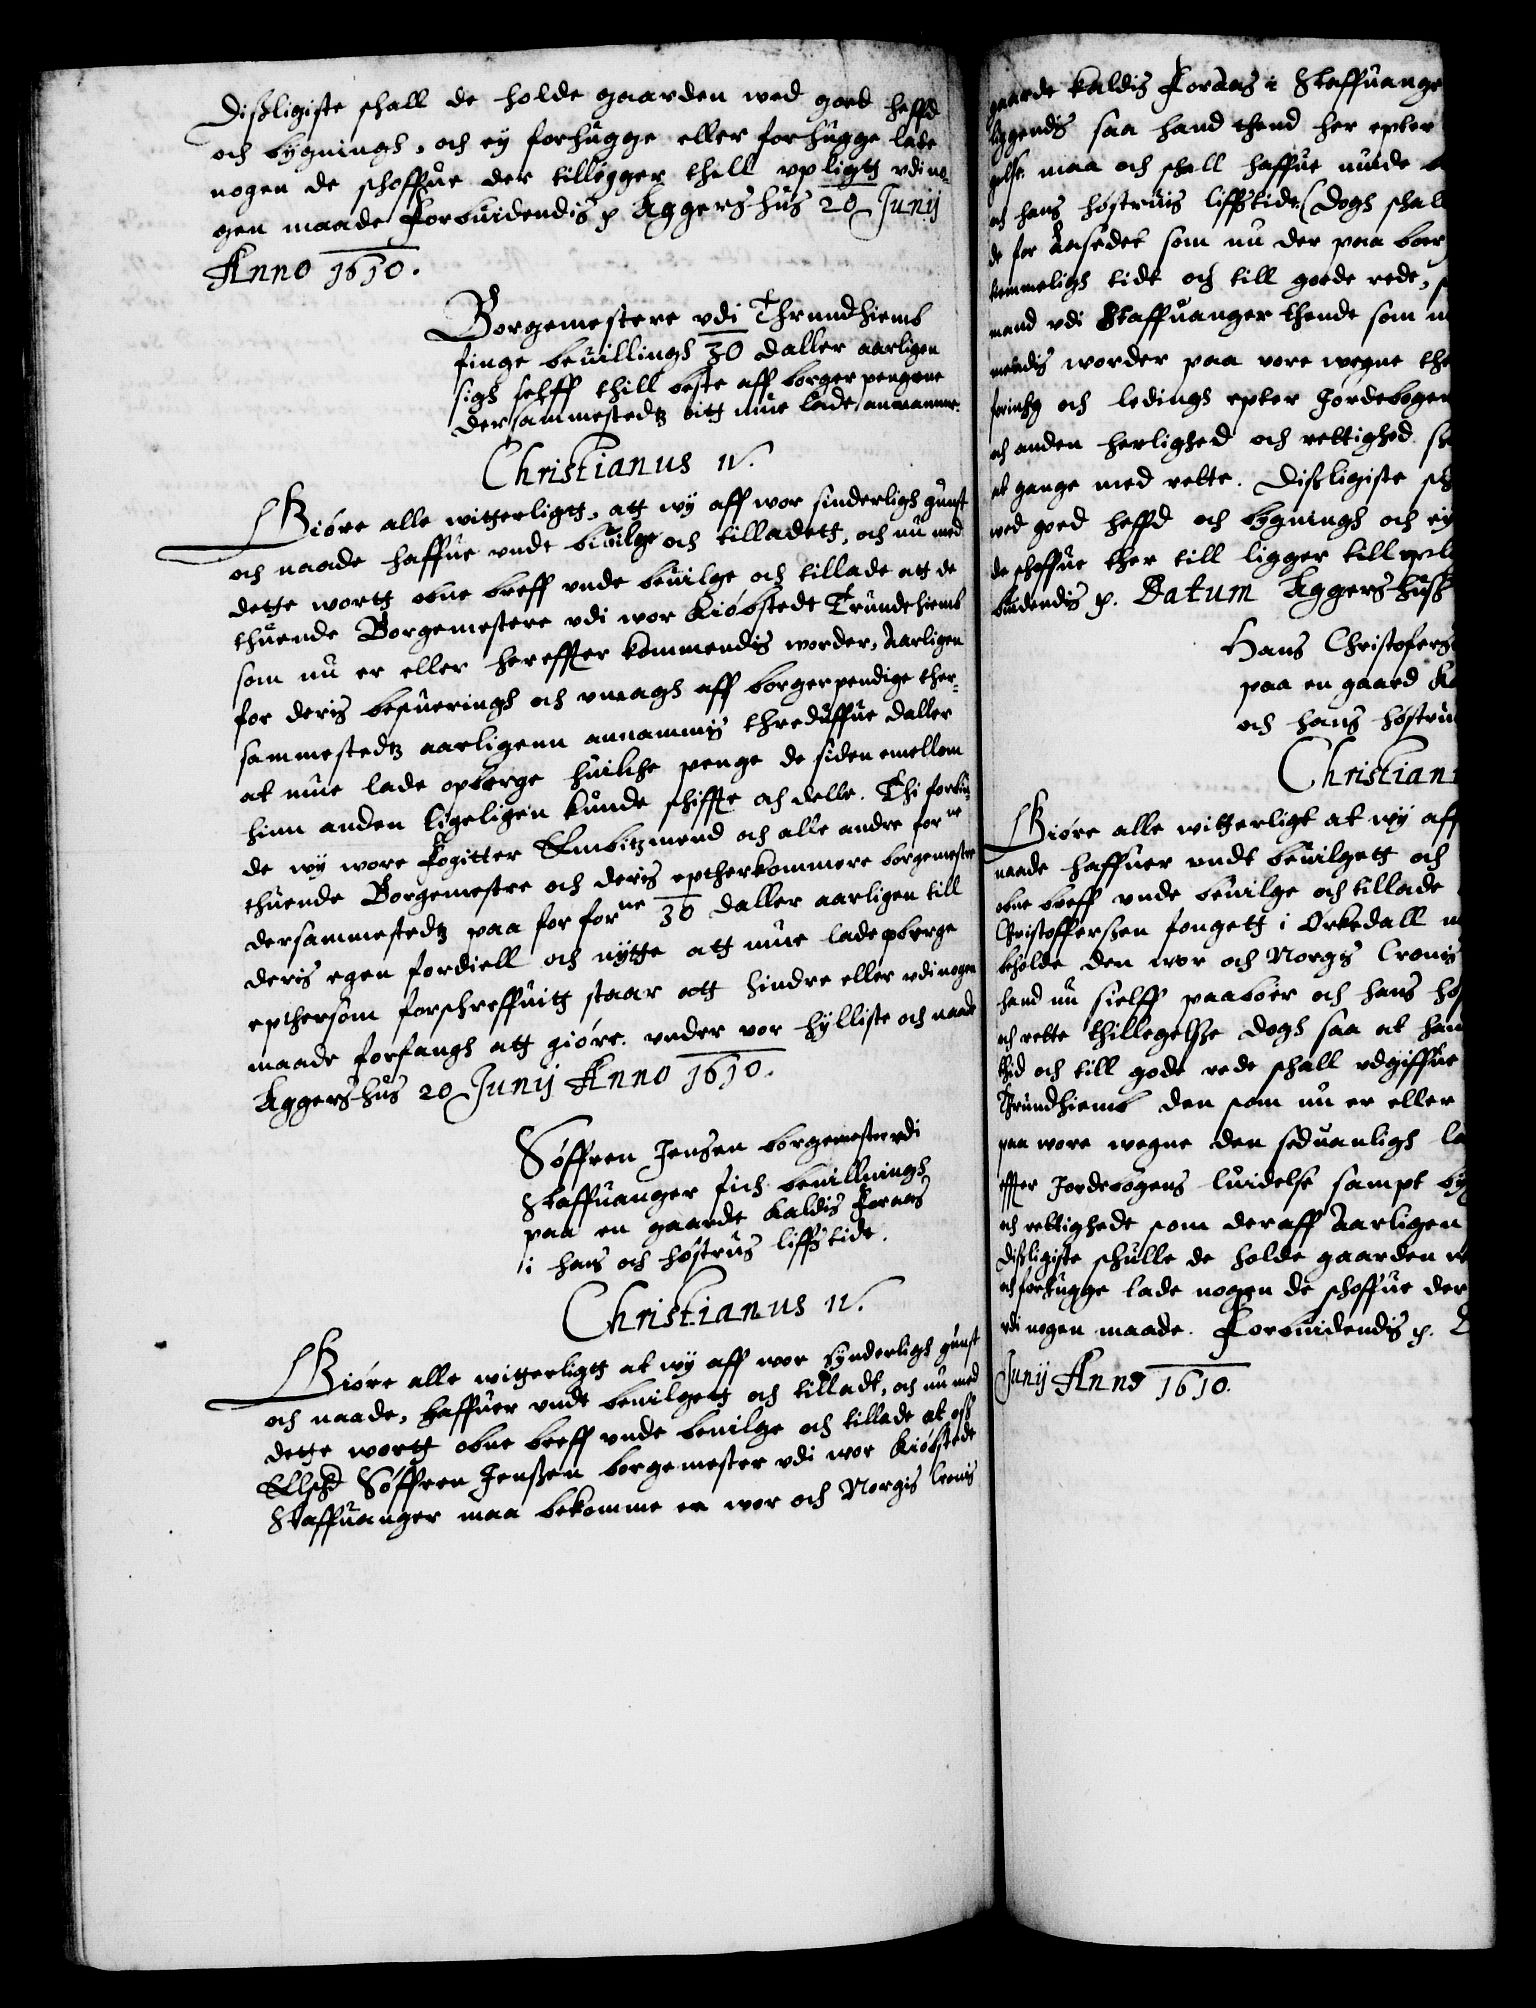 Dißligiste schall de holde gaarden wed goed heffd
och bygningh, och ey forhugge eller forhugge lade
nogen de schoffue der tilligger thill vpligtt vdi no-
gen maade Forbuidendis p Aggershus 20 Junij
Anno 1610.
Borgemestere vdi Thrundhiemb
finge beuillingh 30 daller aarligen
sigh selff thill beste aff borger pengene
dersammestedtz att mue lade anamme.
Christianus 4.
Giøre alle witterligtt, att wy aff wor sinderligh gunst
och naade haffue vndt beuilge och tilladett, och nu med
dette wortt obne breff vnde beuilge och tillade att de
thuende Borgemestere vdi wor Kiøbstedt Trundthiemb
som nu er eller hereffter kommendis worder, Aarligen
for deris besueringh och vmagh aff borgerpendige ther-
sammestedtz aarligenn annammis threduffue daller
at mue lade opberge huilche penge de siden emellom
hinn anden ligeligen kunde schiffte och delle. Thi forbiu-
de wy wore Fogitter Embitzmend och alle andre forne
thuende Borgemestre och deris eptherkommere borgemestre
dersammestedtz paa for forne 30 daller aarligen till
deris egen fordiell och nytte att mue lade opberge
epthersom forschreffuitt staar att hindre eller vdi nogen
maade forfangh att giøre. vnder vor hylliste och naade
Aggershus 20 Junij Anno 1610.
Søffren Jensen borgemester vdi
Staffuanger fich beuillningh
paa en gaarde kaldis Foraas
i hans och høstrus liffs tide.
Christianus 4.
Giøre alle witterligtt at wy aff wor synderligh gunst
och naade, haffuer vndt beuilgett och tilladt, och nu med
dette wortt obne breff vnde beuilge och tillade at oss
Elschd Søffren Jenssen borgemester vdi wor Kiøbstede
Staffuanger maa bekomme en wor och Norgis Cronis
gaarde kaldis Foraas i Staffuange
liggendis saa hand thend her epter
maa och schall haffue nuide
och hans høstruis liffs tide (Dogh schal
de for Aasedet som nu der paa boer
temmeligh tide och till goede rede,
mand vdi Staffuanger thende som
mendis worder paa vore wegne the
och ledingh epter Jordebogen
och anden herlighed och rettighed
at gange med rette. Dißligiste sch
wed goed heffd och bygningh och ey
de schoffue ther till ligger till
buidendis p. Datum Aggershuss
Hans Christofers
paa en gaard
och hans høstru
Christian
Giøre alle witterligt at wy aff
naade haffuer vndt beuilgett och
obne breff vnde beuilge och tillade
Christofferssen fongett i Orkedall
beholde den wor och Norgis Cronis
hand nu sielff paaboer och hans høs
och rette thillegelsse dogh saa at han
thid och till gode rede schall vdgiffue
Trundhiemb den som nu er eller
paa wore wegne den seduanligh
effter Jordebogens luidelse sampt byg
och rettighede som deraff Aarligen
Dißligiste schulle de holde gaarden
och forhugge lade nogen de schoffue der
vdi nogen maade. Forbuidendis p.
Junij Anno 1610.